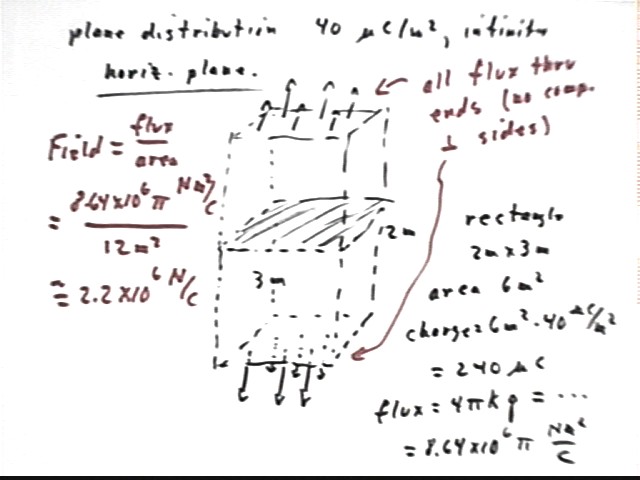 plane distribution 40 μC/m², infinite
horiz. plane.
all flux thru
ends (no comp.
⊥ sides)
Field = flux / area
= 8.64×10⁶ π Nm²/C / 12 m²
= 2.2×10⁶ N/C
12 m
3 m
rectangle
2m × 3m
area 6 m²
charge = 6 m² · 40 μC/m²
= 240 μC
flux = 4πkq = ...
= 8.64×10⁶ π Nm²/C